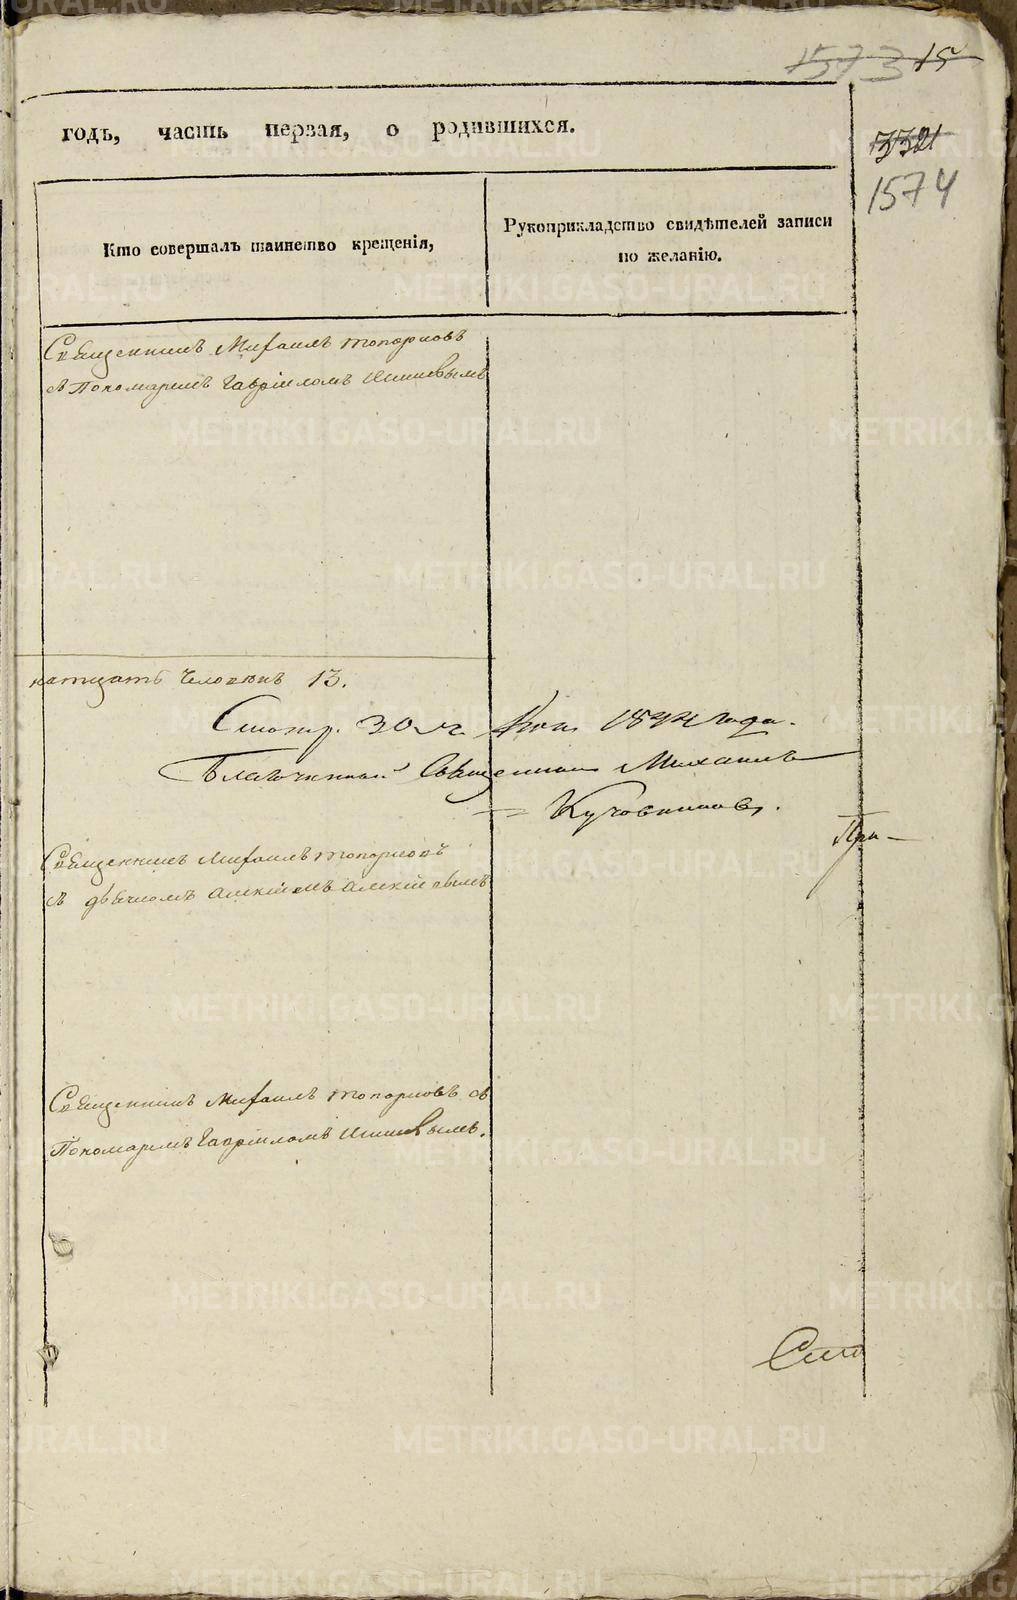 1573 15
годъ, часть первая, о родившихся.
3321
1574
Кто совершалъ таинство крещенія,
Рукоприкладство свидѣтелей записи
по желанію.
Священникъ Михаилъ Топорковъ
съ Пономаремъ Гавріиломъ
натцать Человѣкъ 13.
Смотр. 30 ч. 1844 года.
Благочинный Священникъ Михаилъ
При-
Священникъ Михаилъ Топорковъ
съ дьячкомъ Алексіемъ Алексіевымъ
Священникъ Михаилъ Топорковъ съ
Пономаремъ Гавріиломъ
METRIKI.GASO-URAL.RU